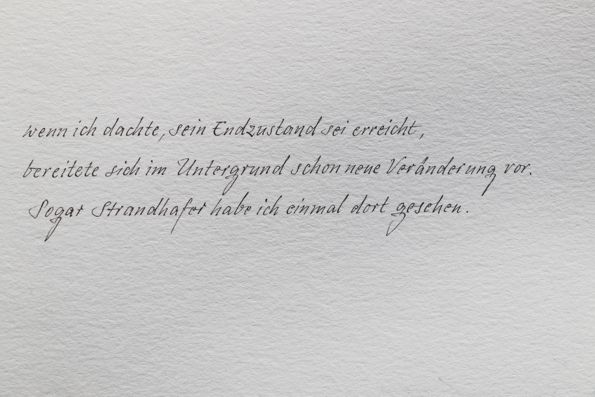 wenn ich dachte, sein Endzustand sei erreicht,
bereitete sich im Untergrund schon neue Veränderung vor.
Sogar Strandhafer habe ich einmal dort gesehen.